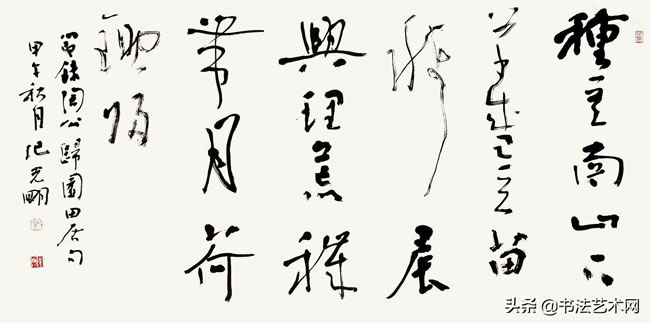 種豆南山下
草盛豆苗
稀晨
興理荒穢
帶月荷
鋤歸
節錄陶公歸園田居句
甲午秋月紀光明
头条 @书法艺术网